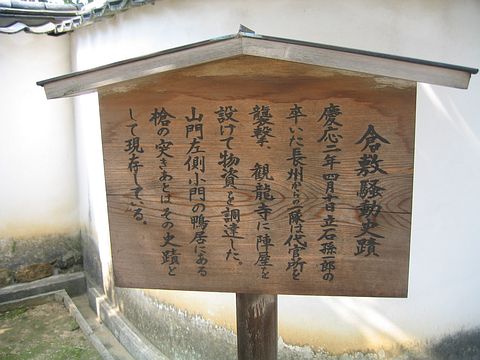 倉敷騒動史蹟
慶応二年四月十日立石孫一郎の
率いた長州からの一隊は代官所を
襲撃、観龍寺に陣屋を
設けて物資を調達した。
山門左側小門の鴨居にある
槍の突きあとはその史蹟と
して現存している。